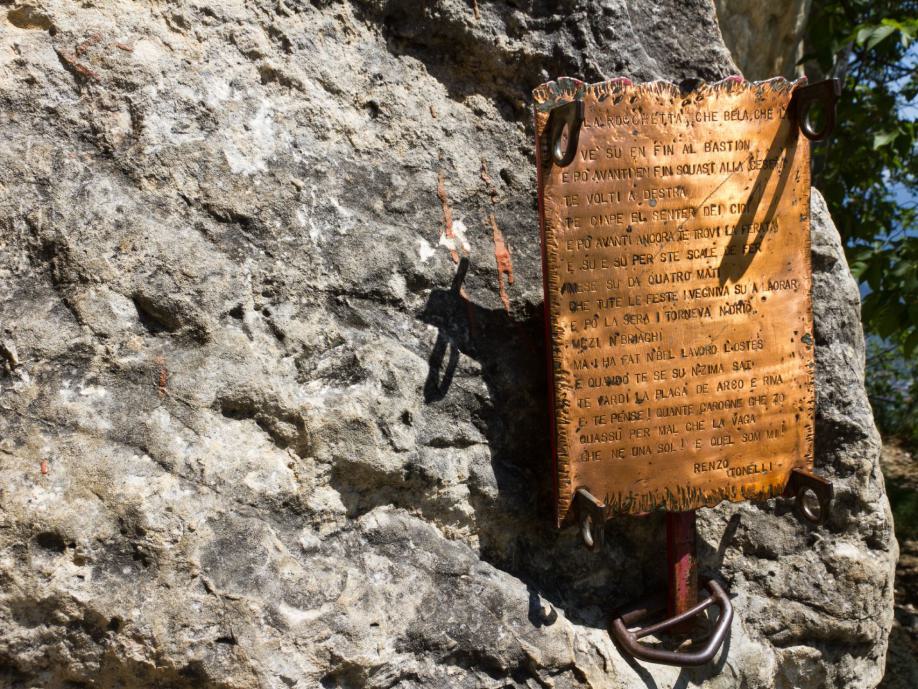 LA ROCCHETTA, CHE BELA, CHE
VÈ SU EN FIN AL BASTION
E PO AVANTI EN FIN SQUAST ALLA
TE VOLTI A DESTRA
TE CIAPE EL SENTER DEI
E PO AVANTI ANCORA TE TROVI LA FERATA
E SU E SU PER STE SCALE DE FER
MESE SU DA QUATRO MATI
CHE TUTE LE FESTE I VEGNIVA SU A LAORAR
E PO LA SERA I TORNEVA N'DRIO
MEZI
MA I HA FAT N'BEL LAVORO L'OSTES
E QUANDO TE SE SU N'ZIMA SAT
TE VARDI LA PLAGA DE ARCO E RIVA
E TE PENSE I QUANTE CAROGNE GHE ZO
QUASSÙ PER MAL CHE LA VAGA
GHE NE UNA SOL! E QUEL SOM MI!
RENZO
TONELLI